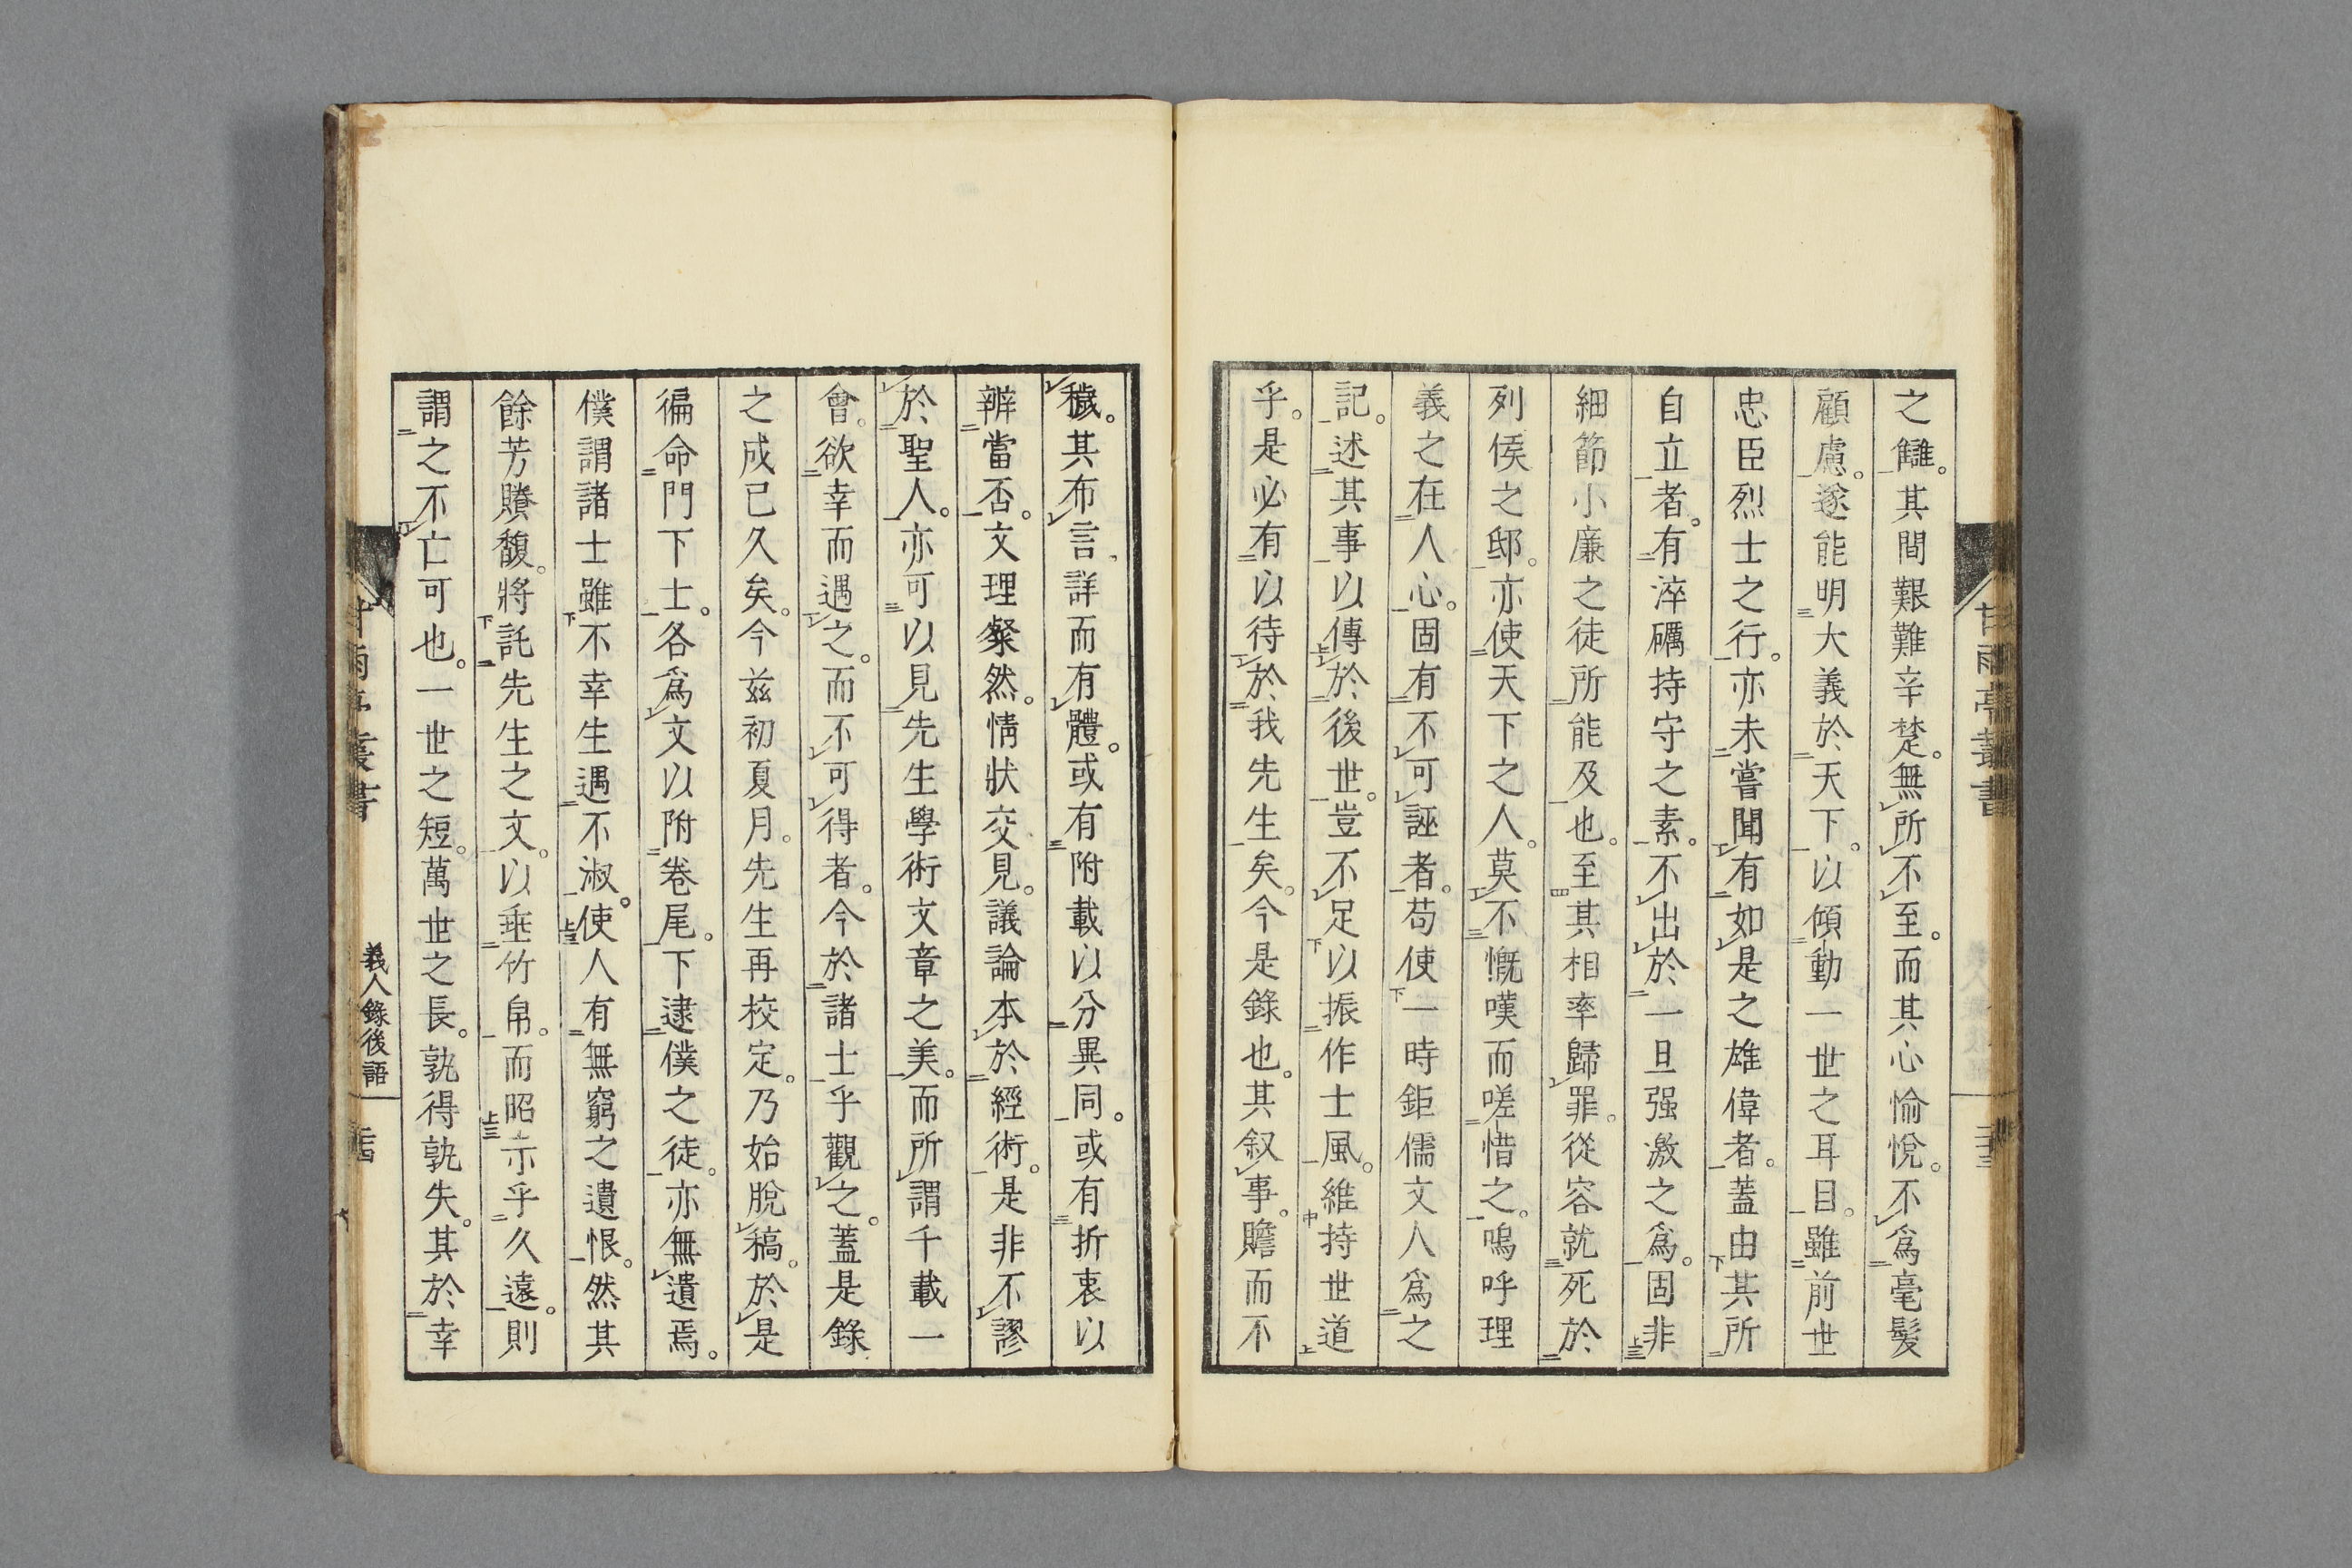 之讎。其間艱難辛楚。無所不至。而其心愉悅。不爲毫髮
顧慮。遂能明大義於天下。以傾動一世之耳目。雖前世
忠臣烈士之行。亦未嘗聞有如是之雄偉者。蓋由其所
自立者。有淬礪持守之素。不出於一旦强激之爲。固非
細節小廉之徒所能及也。至其相率歸罪。從容就死於
列侯之邸。亦使天下之人。莫不慨嘆而嗟惜之。嗚呼理
義之在人心。固有不可誣者。苟使一時鉅儒文人爲之
記。述其事以傳於後世。豈不足以振作士風。維持世道
乎。是必有以待於我先生矣。今是錄也。其叙事。贍而不
穢。其布言、詳而有體。或有附載以分異同。或有折衷以
辨當否。文理粲然。情狀交見。議論本於經術。是非不謬
於聖人。亦可以見先生學術文章之美。而所謂千載一
會。欲幸而遇之。而不可得者。今於諸士乎觀之。蓋是錄
之成已久矣。今茲初夏月。先生再校定。乃始脫稿。於是
徧命門下士。各爲文以附卷尾。下逮僕之徒。亦無遺焉。
僕謂諸士雖不幸生遇不淑。使人有無窮之遺恨。然其
餘芳賸馥。將託先生之文。以垂竹帛。而昭示乎久遠。則
謂之不亡可也。一世之短。萬世之長。孰得孰失。其於幸
甘雨亭叢書
義人錄後語